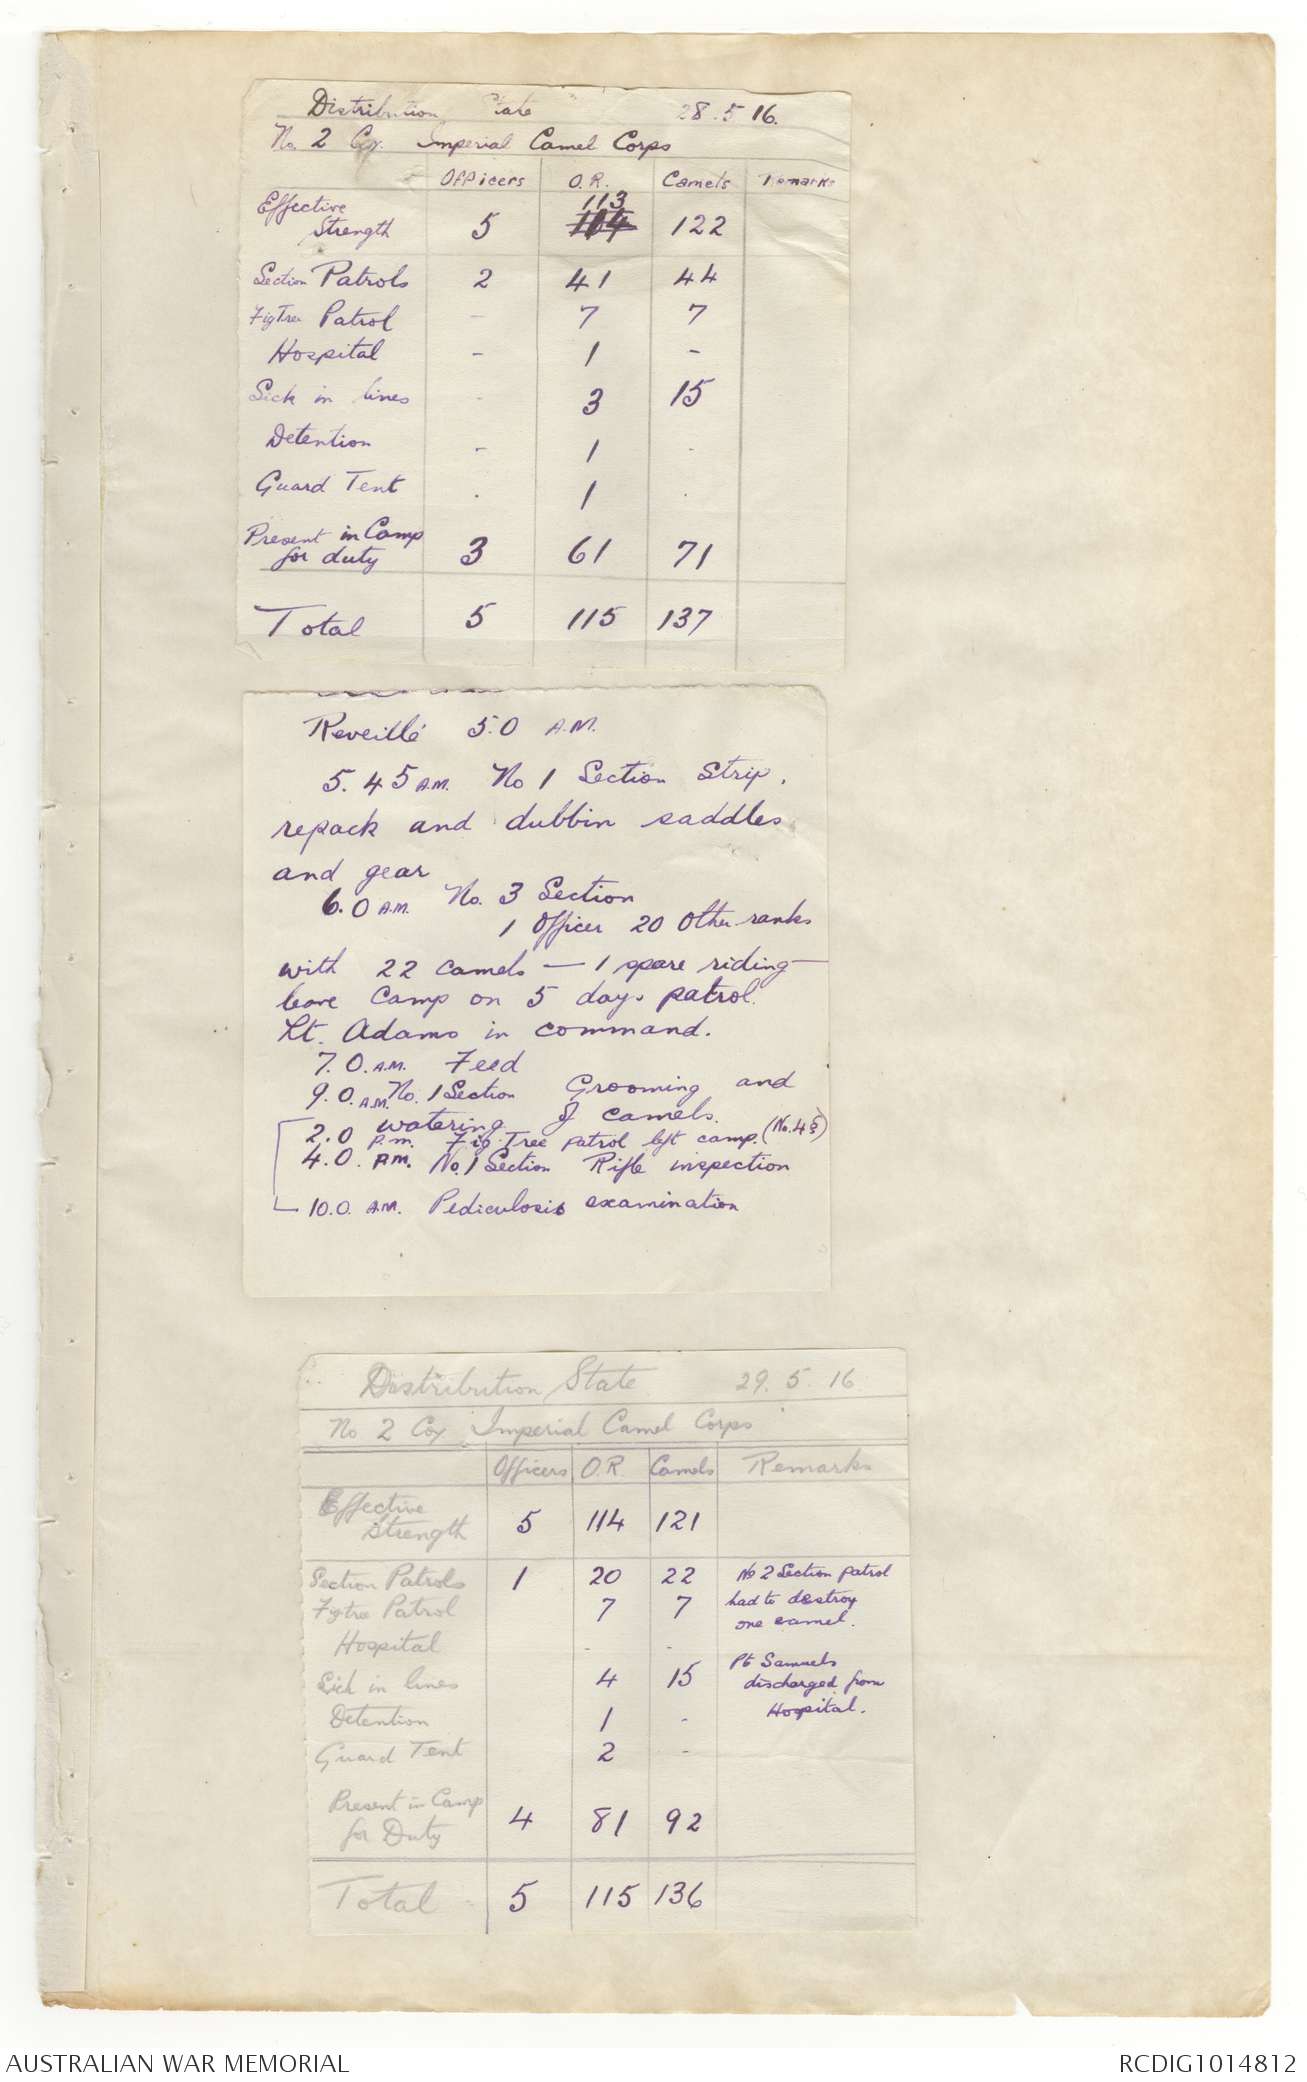 Distribution State 28.5.16.
No. 2 Coy. Imperial Camel Corps
Officers O.R. Camels Remarks
113
Effective
Strength 5 104 122
Section Patrols 2 41 44
Fig Tree Patrol - 7 7
Hospital - 1 -
Sick in lines - 3 15
Detention - 1 -
Guard Tent . 1 .
Present in Camp
for duty 3 61 71
Total 5 115 137
Reveillé 5.0 A.M.
5.45 A.M. No 1 Section Strip,
repack and dubbin saddles
and gear
6.0 A.M. No. 3 Section
1 Officer 20 Other ranks
with 22 camels — 1 spare riding —
leave camp on 5 days patrol.
Lt. Adams in command.
7.0. A.M. Feed
9.0. A.M. No. 1 Section Grooming and
watering of camels.
2.0 P.m. Fig Tree patrol left camp. (No. 4 S)
4.0. P.M. No. 1 Section Rifle inspection
10.0. A.M. Pediculosis examination
Distribution State 29.5.16
No 2 Coy Imperial Camel Corps
Officers O.R. Camels Remarks
Effective
Strength 5 114 121
Section Patrols 1 20 22 No 2 Section patrol
Figtree Patrol 7 7 had to destroy
one camel.
Hospital - -
Pt Samuels
Sick in lines 4 15 discharged from
Hospital.
Detention 1 -
Guard Tent 2 -
Present in Camp
for Duty 4 81 92
Total 5 115 136
AUSTRALIAN WAR MEMORIAL RCDIG1014812